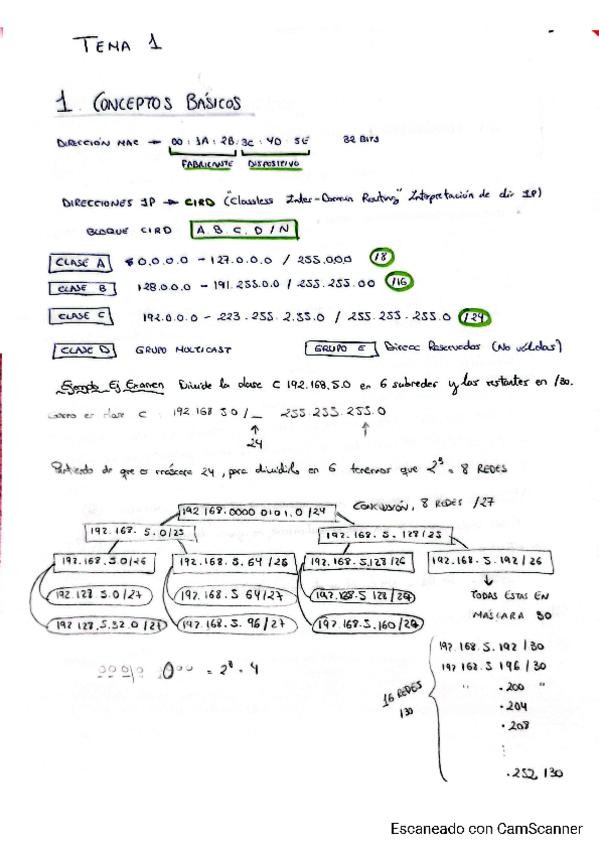 TEMA 1
1. CONCEPTOS BÁSICOS
DIRECCIÓN MAC → 00:1A:2B:3C:4D:5E 32 BITS
FABRICANTE DISPOSITIVO
DIRECCIONES IP → CIRD ("Classless Inter-Domain Routing" Interpretación de dir IP)
BLOQUE CIRD A.B.C.D/N
CLASE A 0.0.0.0 - 127.0.0.0 / 255.0.0.0 /8
CLASE B 128.0.0.0 - 191.255.0.0 / 255.255.0.0 /16
CLASE C 192.0.0.0 - 223.255.255.0 / 255.255.255.0 /24
CLASE D GRUPO MULTICAST GRUPO E Direcc Reservadas (No válidas)
Ejemplo Ej Examen Divide la clase C 192.168.5.0 en 6 subredes y las restantes en /30.
como es clase C: 192.168.5.0/_ 255.255.255.0
24
Partiendo de que es máscara 24, para dividirlo en 6 tenemos que 2³ = 8 REDES
192.168.0000 0101.0 /24 CONCLUSIÓN, 8 REDES /27
192.168.5.0/25 192.168.5.128/25
192.168.5.0/26 192.168.5.64/26 192.168.5.128/26 192.168.5.192/26
192.128.5.0/27 192.168.5.64/27 192.168.5.128/27 TODAS ESTAS EN
192.128.5.32.0/27 192.168.5.96/27 192.168.5.160/27 MÁSCARA 30
192.168.5.192/30
192.168.5.196/30
16 REDES /30 " .200 "
.204
.208
.252/30
Escaneado con CamScanner